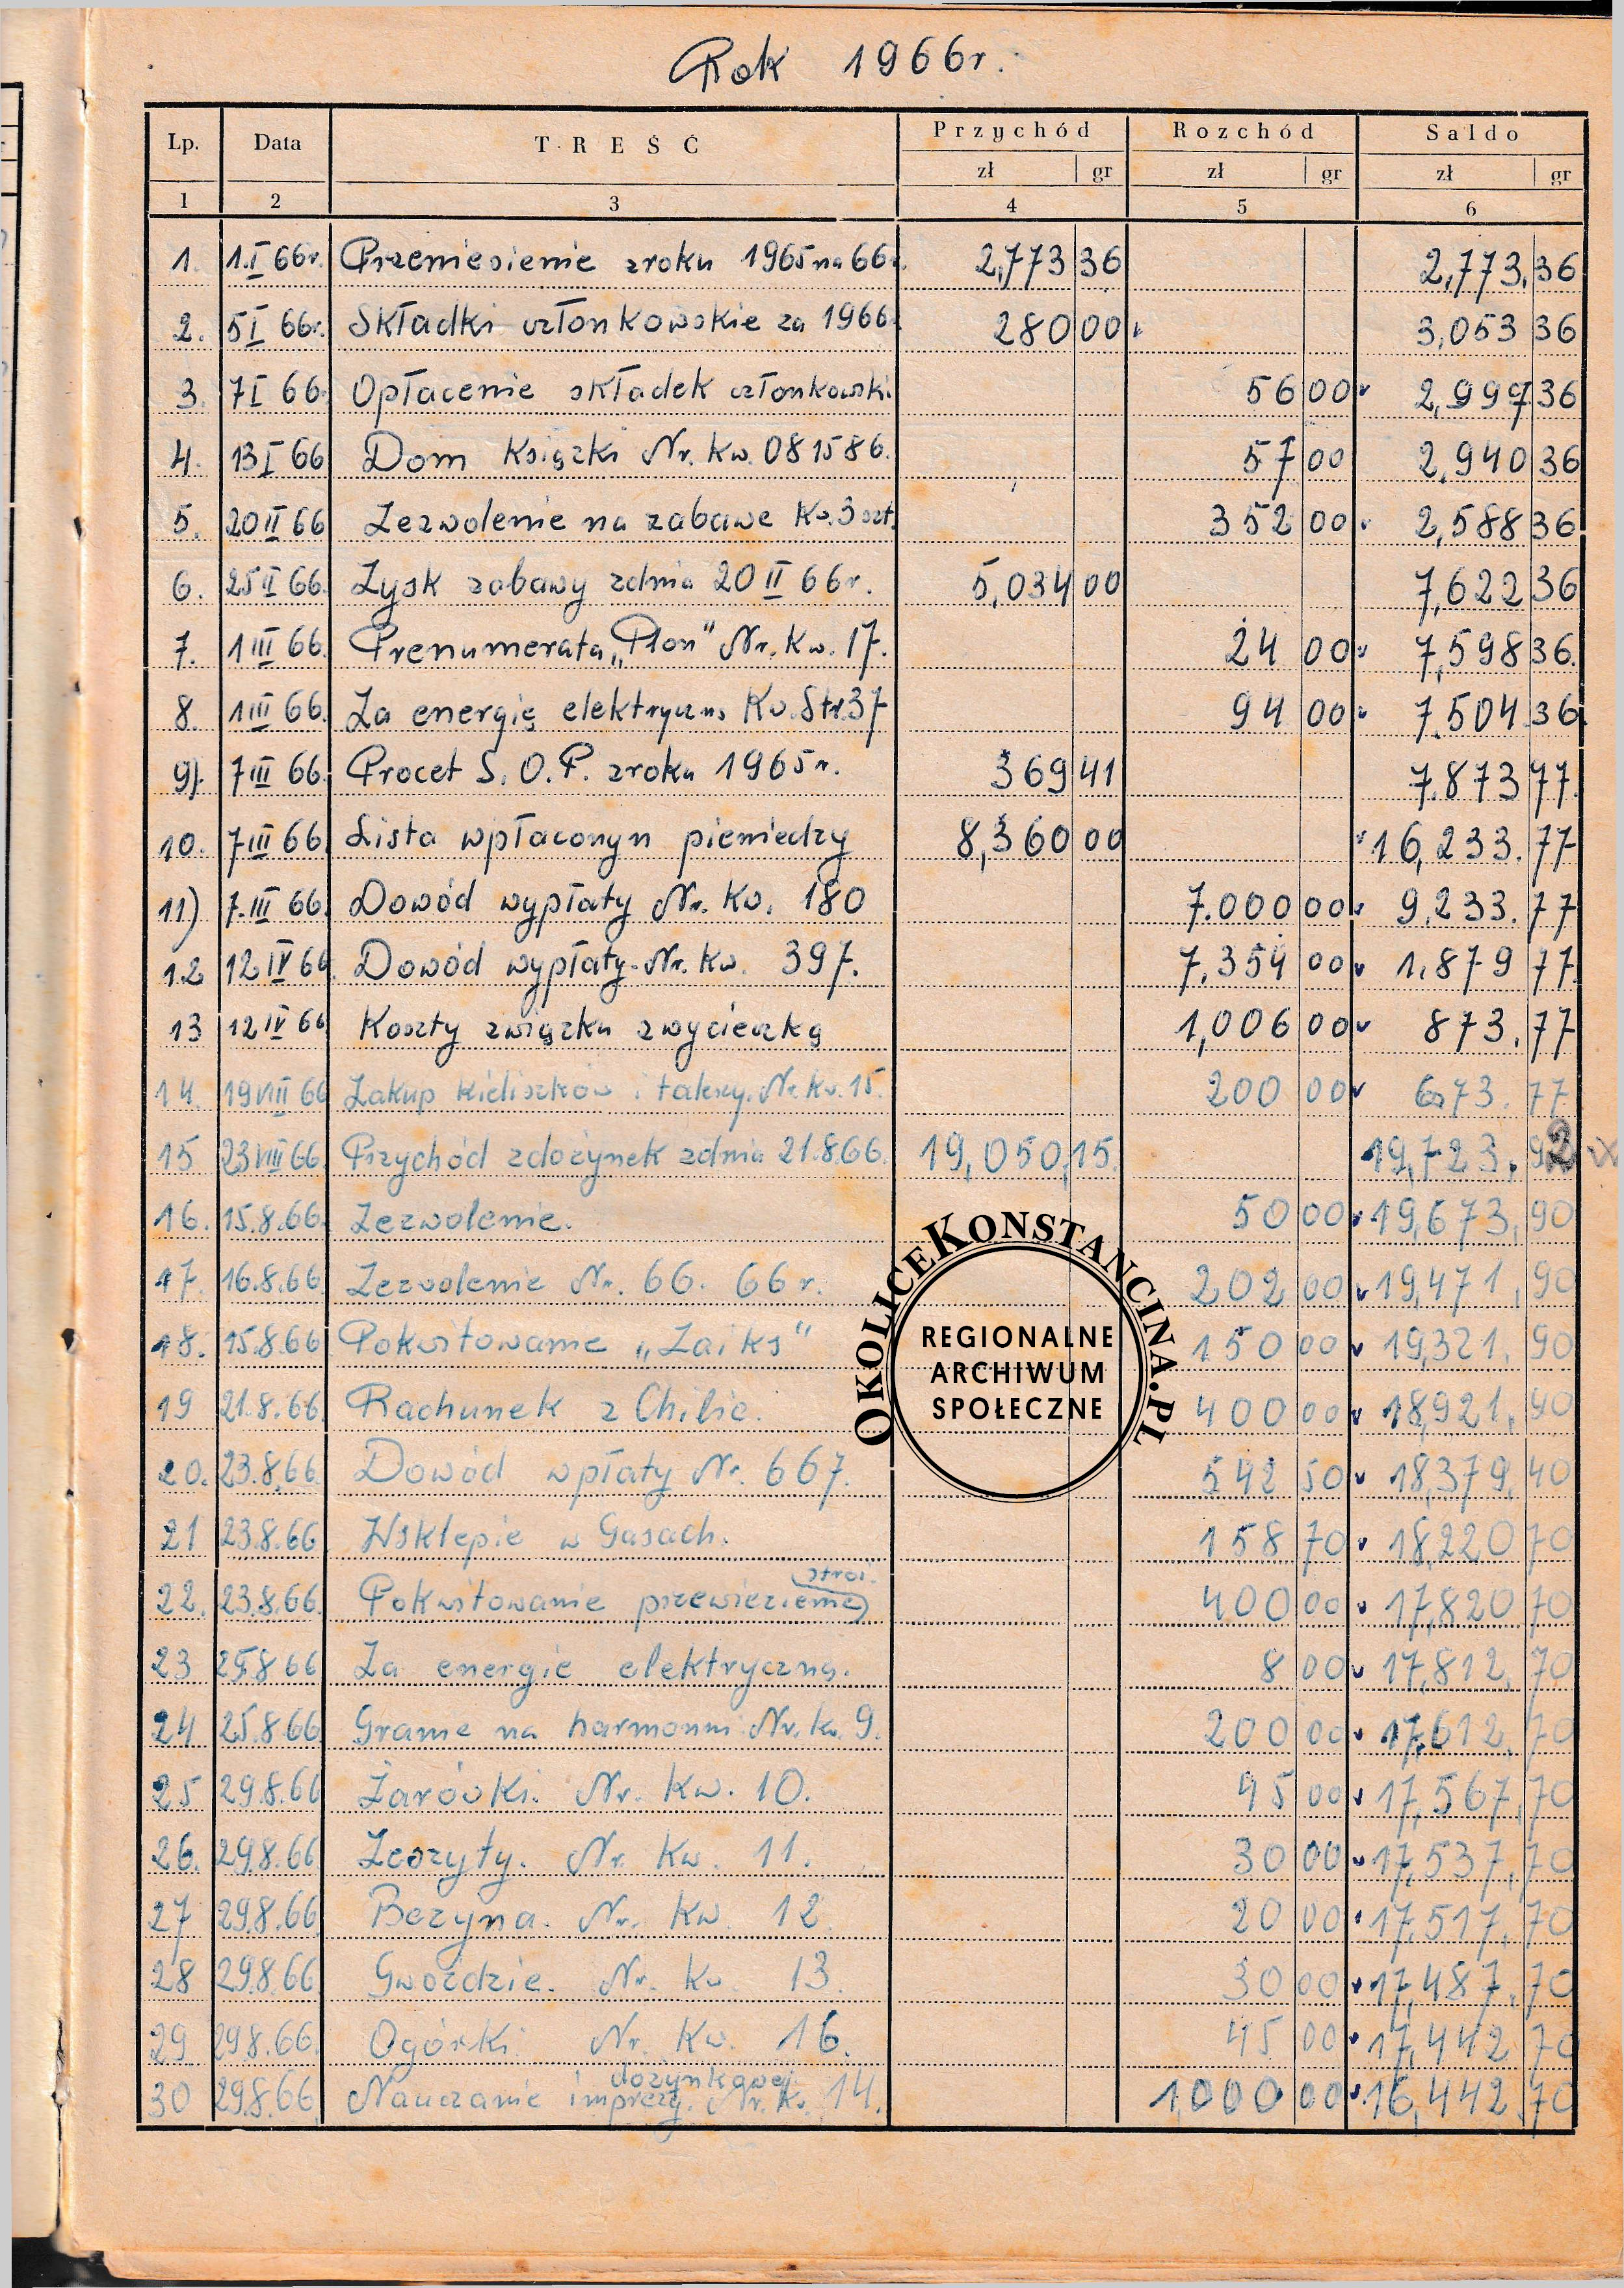 Rok 1966r.
Lp. Data TREŚĆ Przychód Rozchód Saldo
zł gr zł gr zł gr
1 2 3 4 5 6
1. 1.I 66r. Przeniesienie zroku 1965 na 66r. 2,773 36 2,773.36
2. 5 I 66r. Składki członkowskie za 1966 280 00 3,053 36
3. 7 I 66. Opłacenie składek członkowski. 56 00 2,997 36
4. 13 I 66 Dom Książki Nr. Kw. 081586. 57 00 2,940 36
5. 20 II 66 Zezwolenie na zabawe Kw. 3 szt. 352 00 2,588 36
6. 25 II 66. Zysk zabawy zdnia 20 II 66r. 5,034 00 7,622 36
7. 1 III 66. Prenumerata „Plon" Nr. Kw. 17. 24 00 7,598 36.
8. 1 III 66. Za energię elektryczną Kw. Str. 37 94 00 7.504 36
9). 7 III 66. Procet S. O. P. zroku 1965r. 369 41 7.873 77.
10. 7 III 66. Lista wpłaconyn pieniedzy 8,360 00 16,233.77
11) 7.III 66. Dowód wypłaty Nr. Kw. 180 7.000 00 9,233.77
12 12 IV 66. Dowód wypłaty. Nr. Kw. 397. 7,354 00 1.879 77.
13 12 IV 66 Koszty związku zwycieczką 1,006 00 873.77
14. 19 VIII 66 Zakup kieliszków i talerzy. Nr. kw. 15. 200 00 673.77
15 23 VIII 66. Przychód zdożynek zdnia 21.8.66. 19,050,15. 19,723.92
16. 15.8.66. Zezwolenie. 50 00 19,673,90
17. 16.8.66 Zezwolenie Nr. 66. 66r. 202 00 19,471,90
18. 15.8.66 Pokwitowanie „Zaiks" 150 00 19,321.90
19 21.8.66. Rachunek z Chilic. 400 00 18,921,90
20. 23.8.66. Dowód wpłaty Nr. 667. 542 50 18,379,40
21 23.8.66 Wsklepie w Gasach. 158 70 18,220 70
stroi.
22. 23.8.66. Pokwitowanie przewiezienie 400 00 17,820 70
23 25.8 66 Za energie elektryczną. 8 00 17,812,70
24 25.8.66 Granie na harmonni Nr. kw. 9. 200 00 17,612,70
25 29.8.66 Żarówki. Nr. Kw. 10. 45 00 17,567,70
26. 29.8.66 Zeszyty. Nr. Kw. 11. 30 00 17,537,70
27 29.8.66 Bezyna. Nr. Kw. 12. 20 00 17,517,70
28 29.8.66 Gwoździe. Nr. Kw. 13. 30 00 17,487,70
29 29.8.66. Ogórki. Nr. Kw. 16. 45 00 17,442 70
dożynkowej
30 29.8.66. Nauczanie imprezy. Nr. Kw. 14. 1000 00 16,442 70
OKOLICEKONSTANCINA.PL
REGIONALNE
ARCHIWUM
SPOŁECZNE